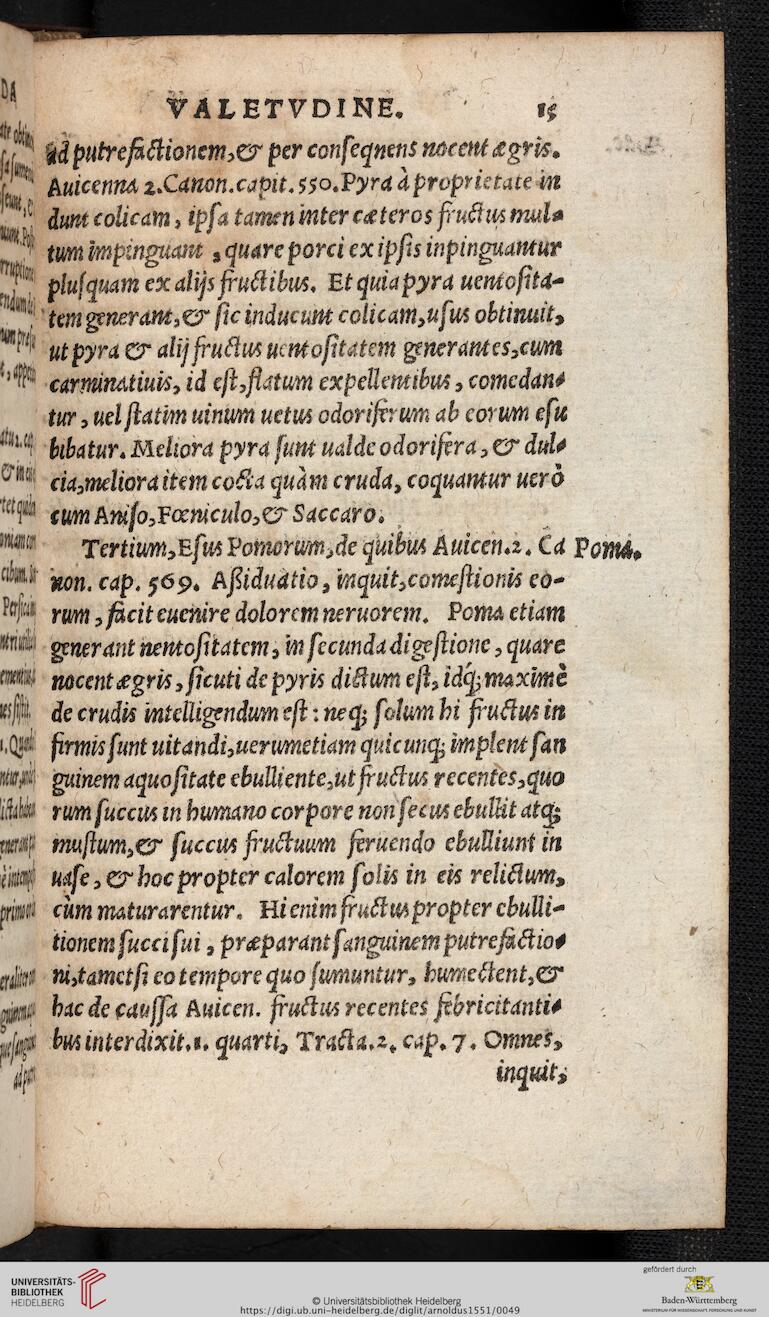 VALETVDINE. 15
ad putrefactionem, & per conseqnens nocent ægris.
Auicenna 2. Canon. capit. 550. Pyra à proprietate in
dunt colicam, ipsa tamen inter cæteros fructus mul-
tum impinguant, quare porci ex ipsis inpinguantur
plusquam ex alijs fructibus. Et quia pyra uentosita-
tem generant, & sic inducunt colicam, usus obtinuit,
ut pyra & alij fructus uentositatem generantes, cum
carminatiuis, id est, flatum expellentibus, comedan-
tur, uel statim uinum uetus odoriferum ab eorum esu
bibatur. Meliora pyra sunt ualde odorifera, & dul-
cia, meliora item cocta quàm cruda, coquantur uerò
cum Aniso, Fœniculo, & Saccaro.
Tertium, Esus Pomorum, de quibus Auicen. 2. Ca Poma.
non. cap. 569. Aßiduatio, inquit, comestionis eo-
rum, facit euenire dolorem neruorem. Poma etiam
generant nentositatem, in secunda digestione, quare
nocent ægris, sicuti de pyris dictum est, idq́; maximè
de crudis intelligendum est: neq; solum hi fructus in
firmis sunt uitandi, uerumetiam quicunq; implent san
guinem aquositate ebulliente, ut fructus recentes, quo
rum succus in humano corpore non secus ebullit atq;
mustum, & succus fructuum feruendo ebulliunt in
uase, & hoc propter calorem solis in eis relictum,
cùm maturarentur. Hi enim fructus propter ebulli-
tionem succi sui, præparant sanguinem putrefactio-
ni, tametsi eo tempore quo sumuntur, humectent, &
hac de caussa Auicen. fructus recentes febricitanti-
bus interdixit. 1. quarti, Tracta. 2. cap. 7. Omnes,
inquit,
UNIVERSITÄTS-
BIBLIOTHEK
HEIDELBERG
© Universitätsbibliothek Heidelberg
https://digi.ub.uni-heidelberg.de/diglit/arnoldus1551/0049
gefördert durch
Baden-Württemberg
MINISTERIUM FÜR WISSENSCHAFT, FORSCHUNG UND KUNST